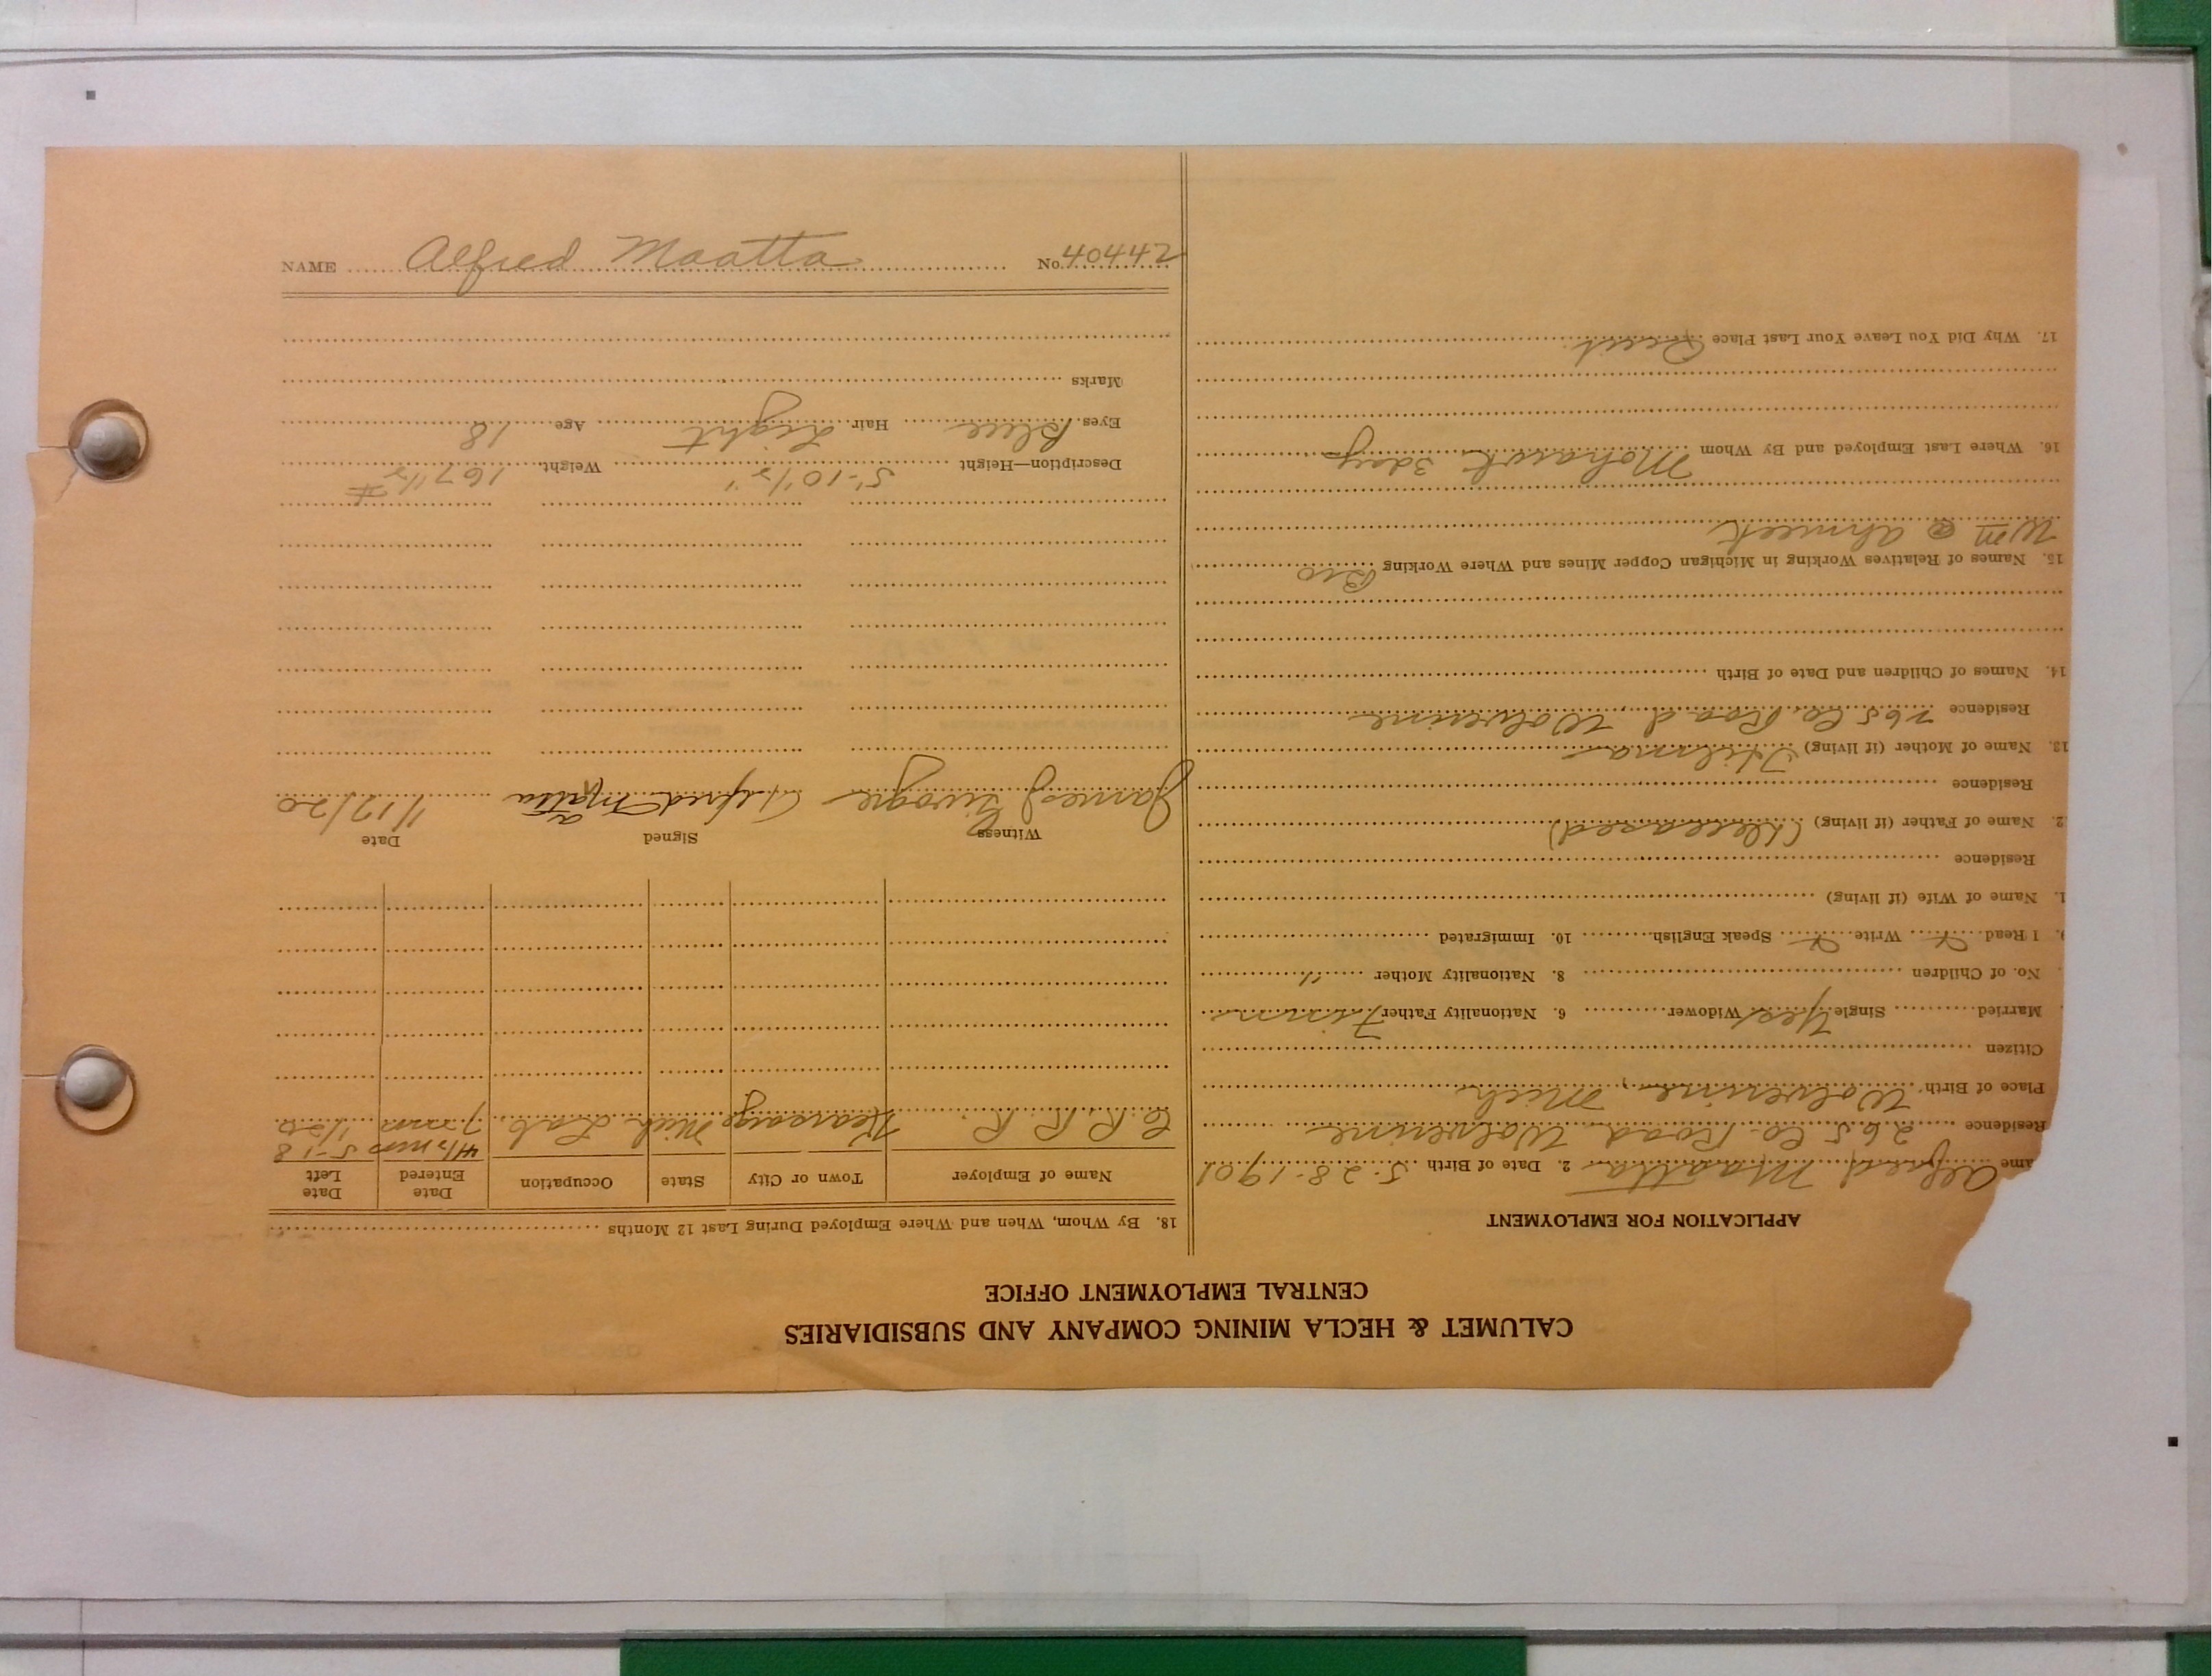 CALUMET & HECLA MINING COMPANY AND SUBSIDIARIES
CENTRAL EMPLOYMENT OFFICE
APPLICATION FOR EMPLOYMENT
ame Alfred Maatta 2. Date of Birth 5-28-1901
Residence 265 Co. Road Wolverine
Place of Birth Wolverine, Mich
Citizen
Married Single Yes Widower 6. Nationality Father Finn
No. of Children 8. Nationality Mother "
9. I Read Write Speak English 10. Immigrated
1. Name of Wife (if living)
Residence
2. Name of Father (if living) (Deceased)
Residence
13. Name of Mother (if living) Hilma
Residence 265 Co. Road, Wolverine
14. Names of Children and Date of Birth
15. Names of Relatives Working in Michigan Copper Mines and Where Working Bro
Wm @ Ahmeek
16. Where Last Employed and By Whom Mohawk 3 days
17. Why Did You Leave Your Last Place Quit
18. By Whom, When and Where Employed During Last 12 Months
Name of Employer Town or City State Occupation Date Entered Date Left
4 1/2 mos 5-18
C. R. R. R. Kearsarge Mich Lab. 7 mos 1/20
Witness Signed Date
James Alfred Matta a 1/12/20
Description—Height 5'-10 1/2" Weight 167 1/2 #
Eyes Blue Hair Light Age 18
Marks
NAME Alfred Maatta No. 40442